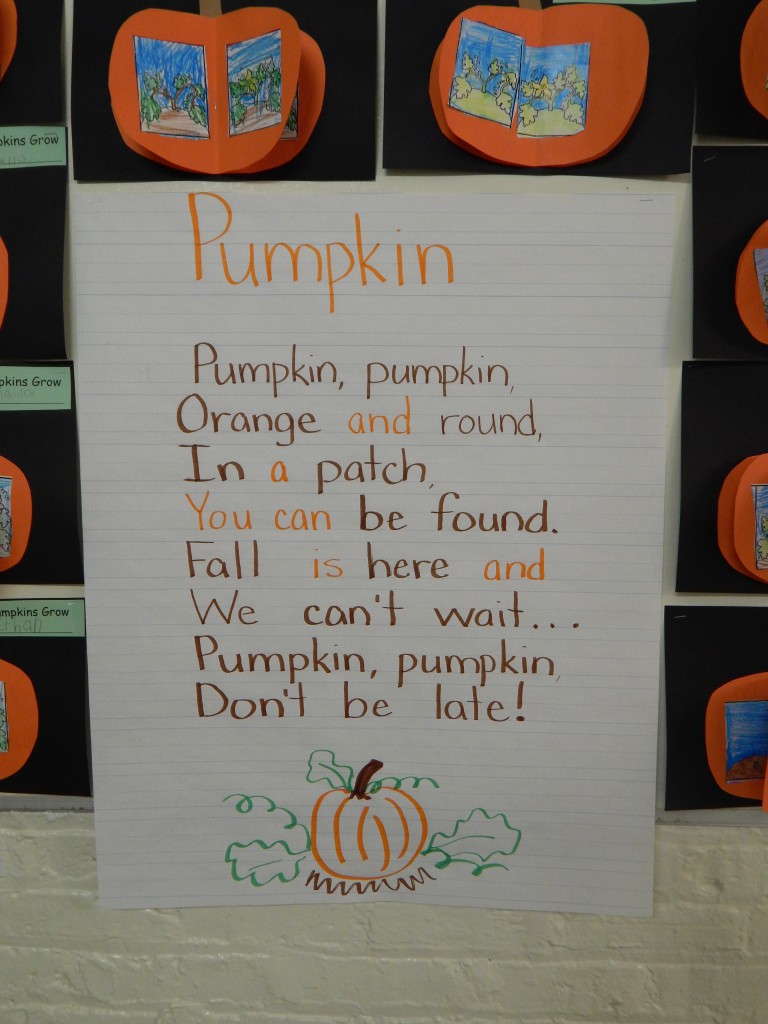 mpkins Grow
Pumpkin
Pumpkin, pumpkin,
Orange and round,
In a patch,
You can be found.
Fall is here and
We can't wait...
Pumpkin, pumpkin,
Don't be late!
mpkins Grow
umpkins Grow